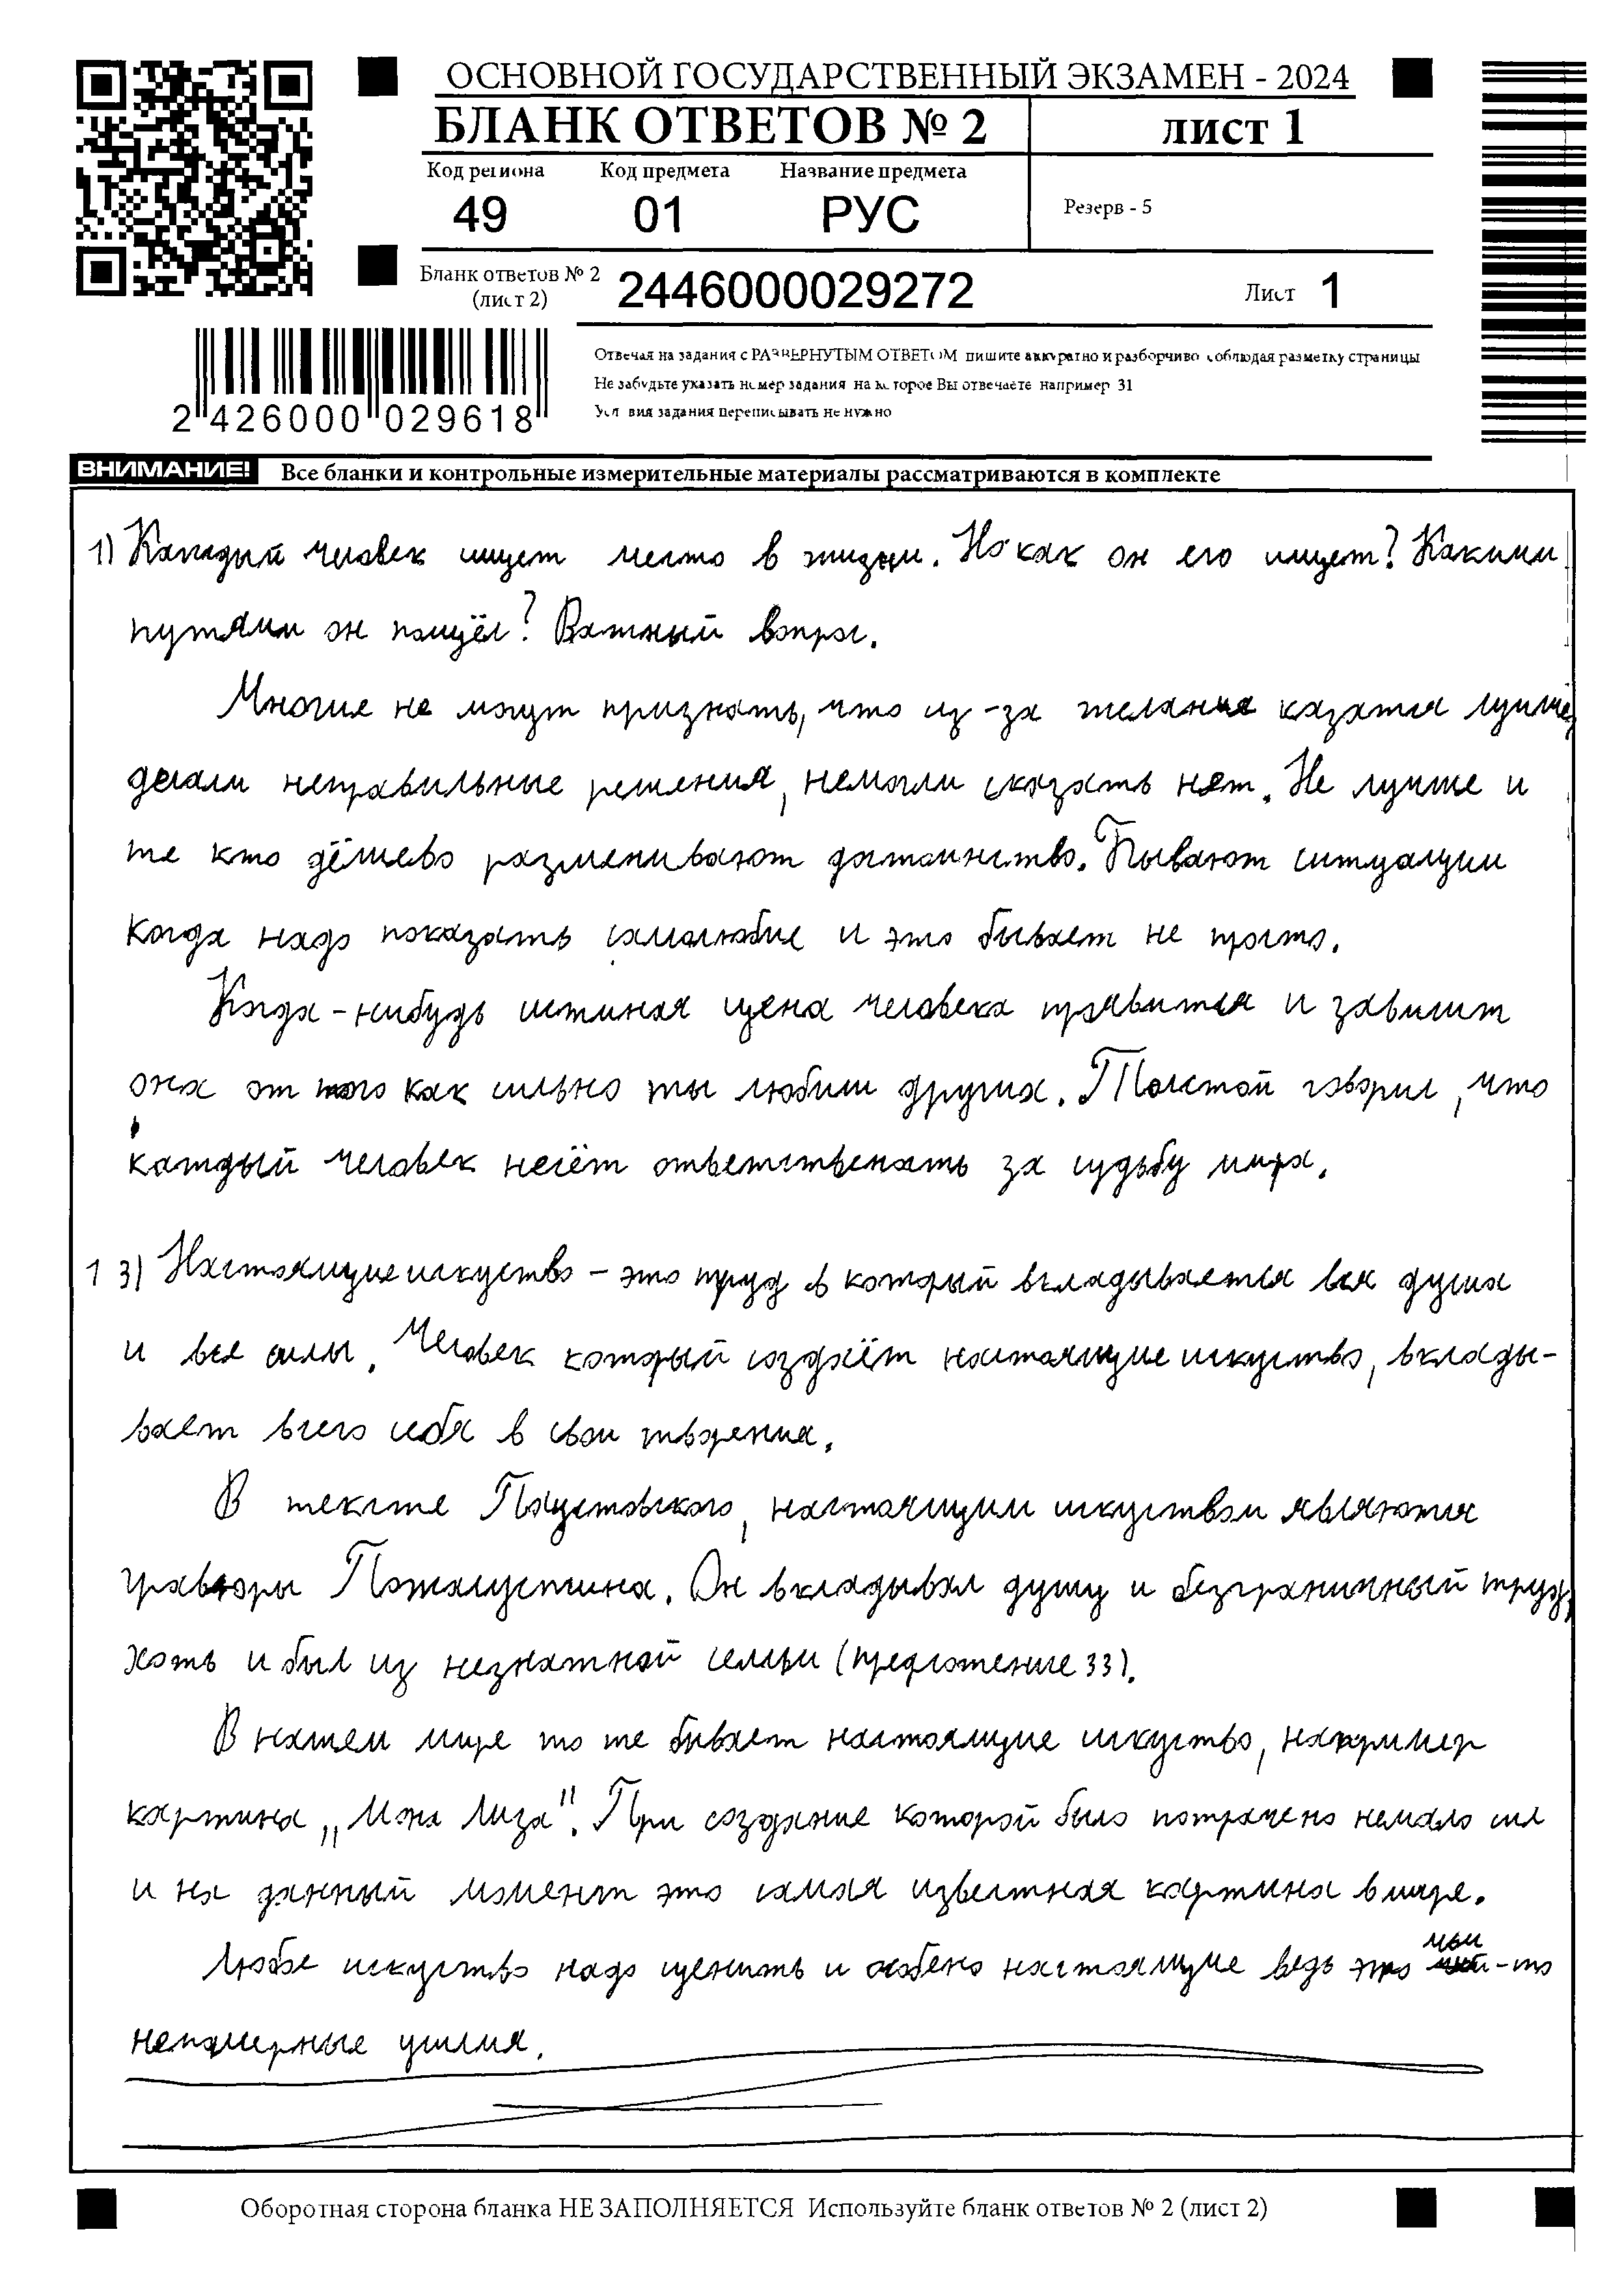 ОСНОВНОЙ ГОСУДАРСТВЕННЫЙ ЭКЗАМЕН - 2024
БЛАНК ОТВЕТОВ № 2
лист 1
Код региона
Код предмета
Название предмета
49
01
РУС
Резерв - 5
Бланк ответов № 2
(лист 2)
2446000029272
Лист 1
Отвечая на задания с РАЗВЕРНУТЫМ ОТВЕТОМ пишите аккуратно и разборчиво соблюдая разметку страницы
Не забудьте указать номер задания на которое Вы отвечаете например 31
Условия задания переписывать не нужно
2 426000 029618
ВНИМАНИЕ! Все бланки и контрольные измерительные материалы рассматриваются в комплекте
1) Каждый человек ищет место в жизни. Но как он его ищет? Какими
путями он пошёл? Важный вопрос.
Многие не могут признать, что из-за желание казатся лучше,
делали неправильные решения, немогли сказать нет. Не лучше и
те кто дёшево разменивают достоинство. Бывают ситуации
когда надо показать самолюбие и это бывает не просто.
Когда-нибудь истиная цена человека проявится и зависит
она от того как сильно ты любиш других. Толстой говорил, что
каждый человек несёт ответственать за судьбу мира.
13) Настоящие искуство - это труд в который вкладывается вся душа
и все силы. Человек который создаёт настоящие искуство, вклады-
вает всего себя в свои творения.
В тексте Паустовского, настоящим искуством являются
гравюры Пожалустина. Он вкладывал душу и безграничный труд,
хоть и был из незнатной семьи (предложение 33).
В нашем мире то же бывает настоящие искуство, например
картина „Мона Лиза". При создание которой было потрачено немало сил
и на данный момент это самая известная картина в мире.
Любое искуство надо ценить и особено настоящие ведь это чьи-то
непомерные усилия.
Оборотная сторона бланка НЕ ЗАПОЛНЯЕТСЯ Используйте бланк ответов № 2 (лист 2)